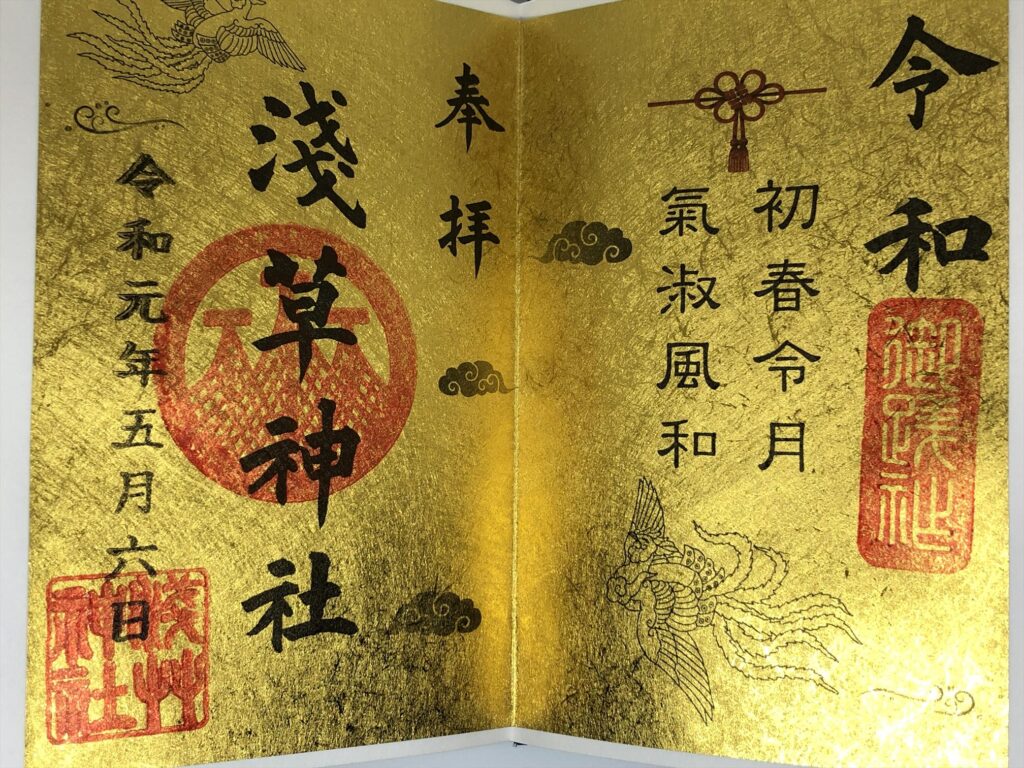 令和
御蹟社
初春令月
氣淑風和
奉拝
淺草神社
令和元年五月六日
淺艸神社